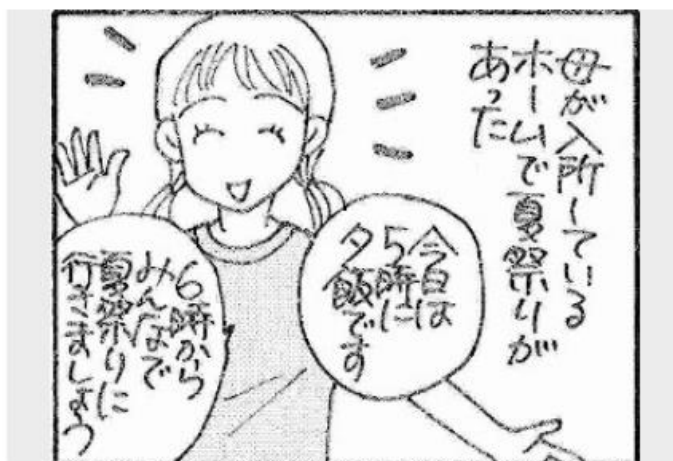 母が入所している
ホームで夏祭りが
あった
今日は
5時に
夕飯です
6時から
みんなで
夏祭りに
行きましょう